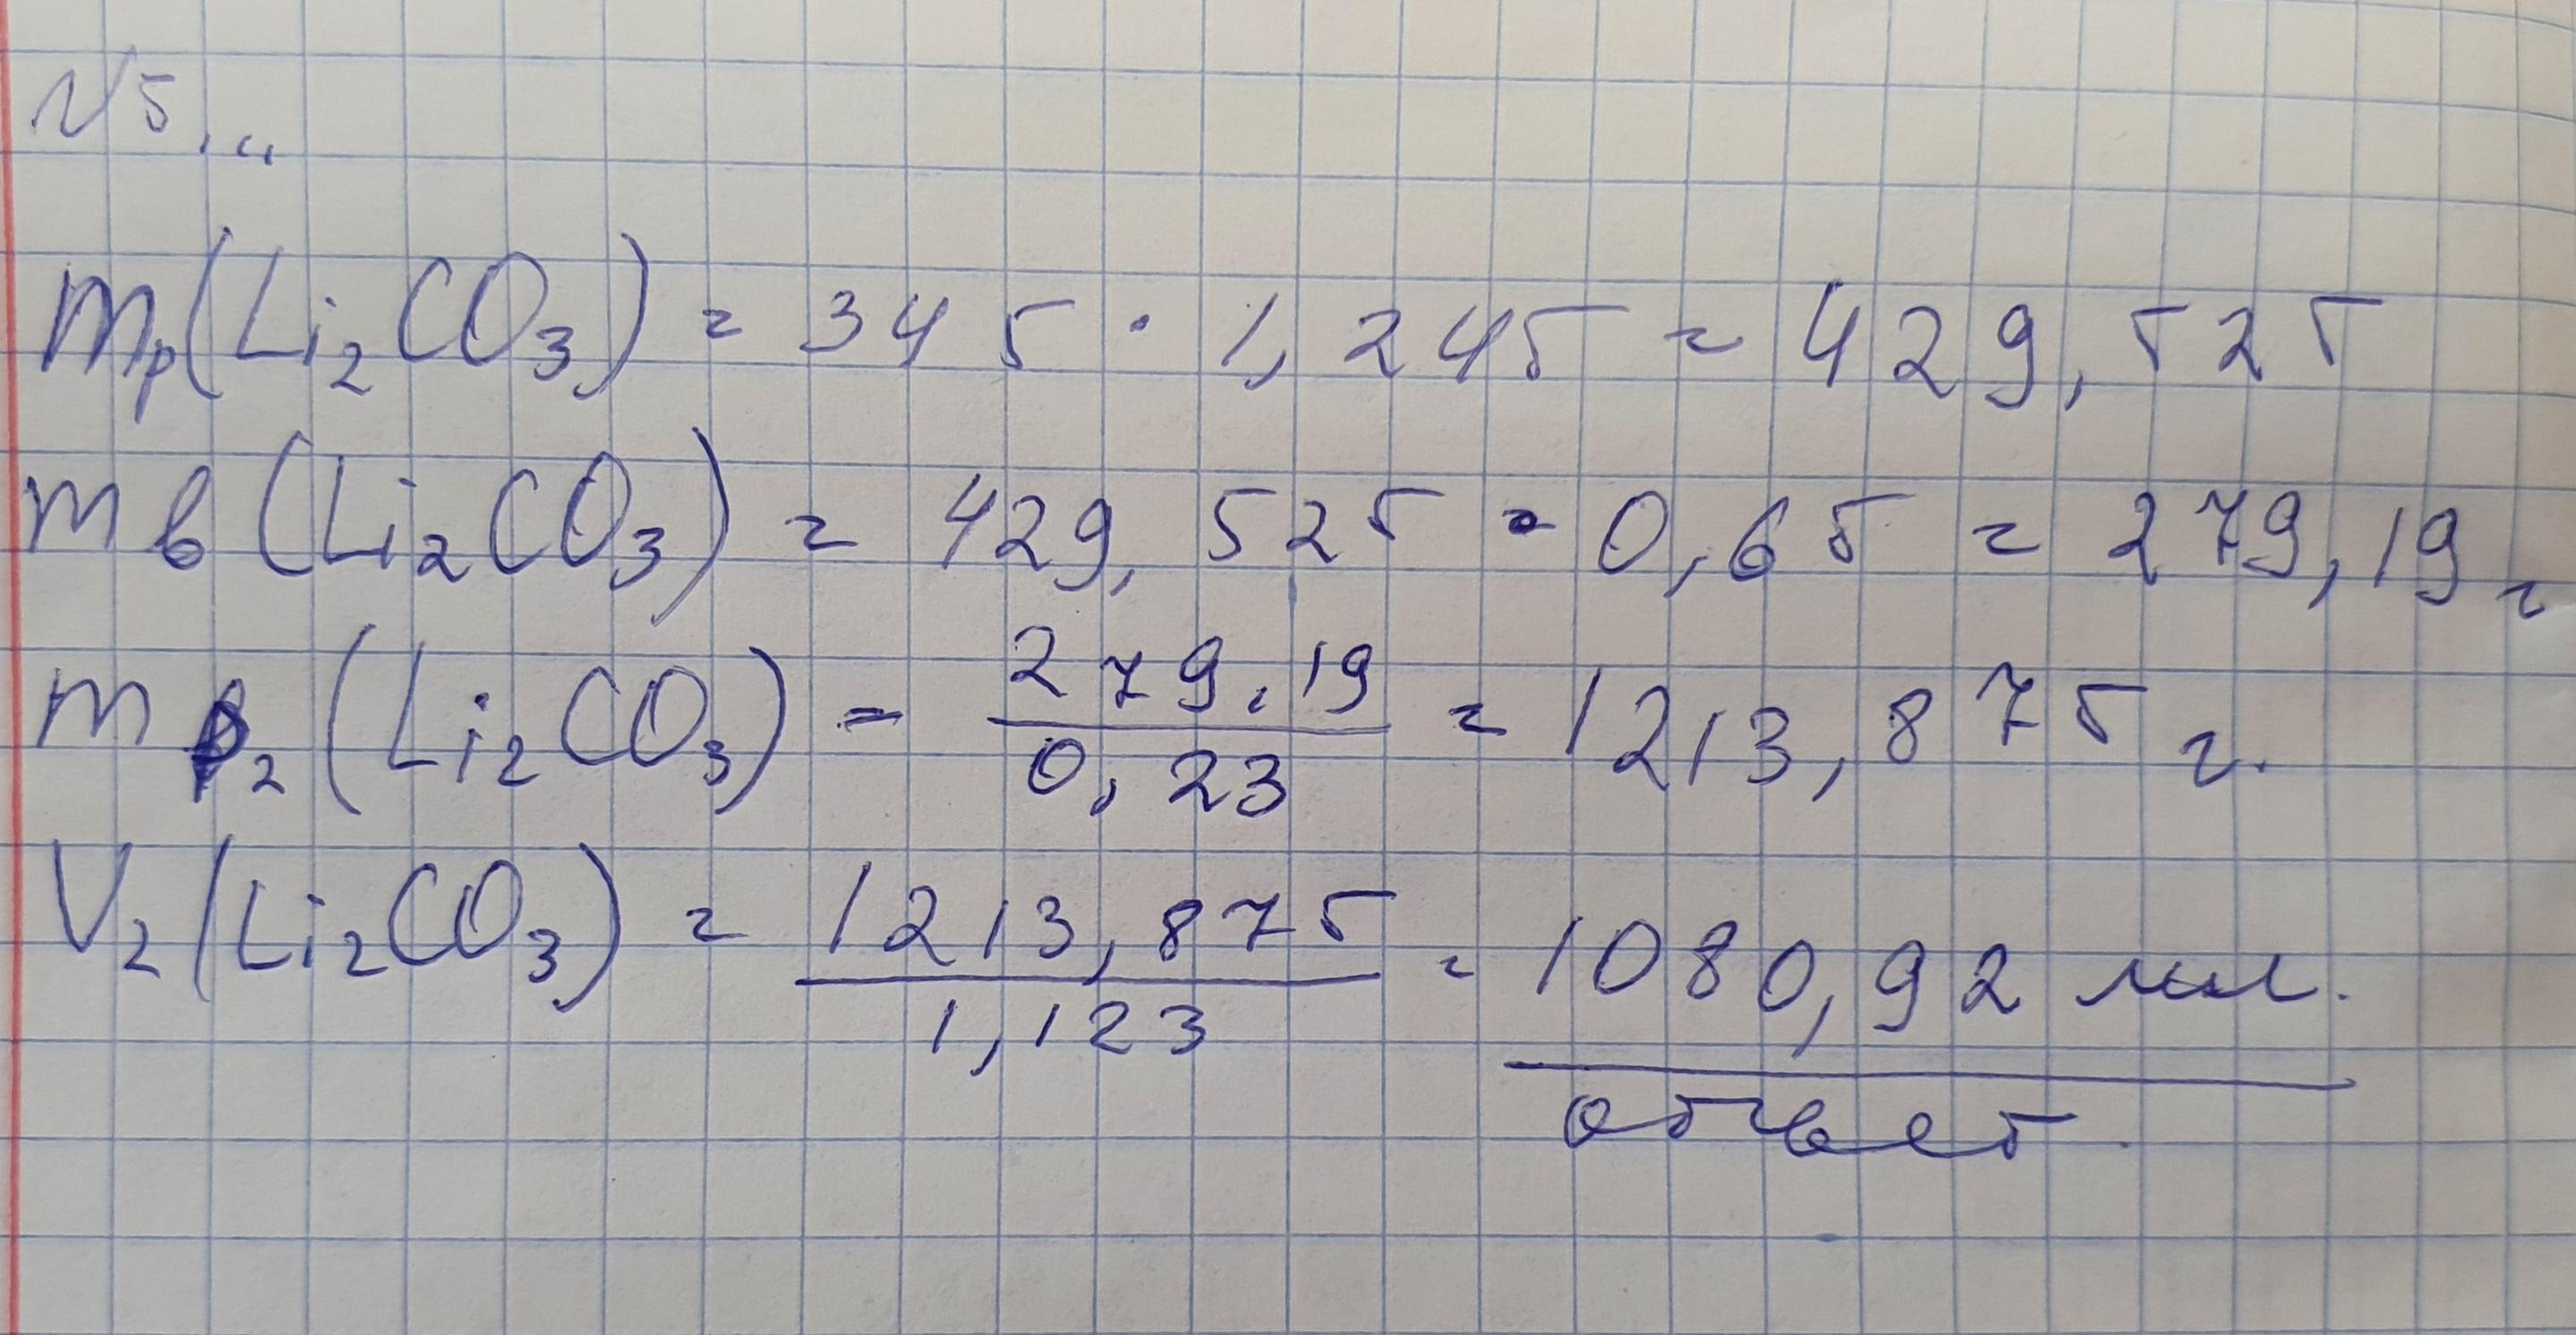 №5...
mр(Li₂CO₃) = 345 · 1,245 = 429,525
mв(Li₂CO₃) = 429,525 · 0,65 = 279,19 г
mр₂(Li₂CO₃) = 279,19 / 0,23 = 1213,875 г.
V₂(Li₂CO₃) = 1213,875 / 1,123 = 1080,92 мл.
ответ.